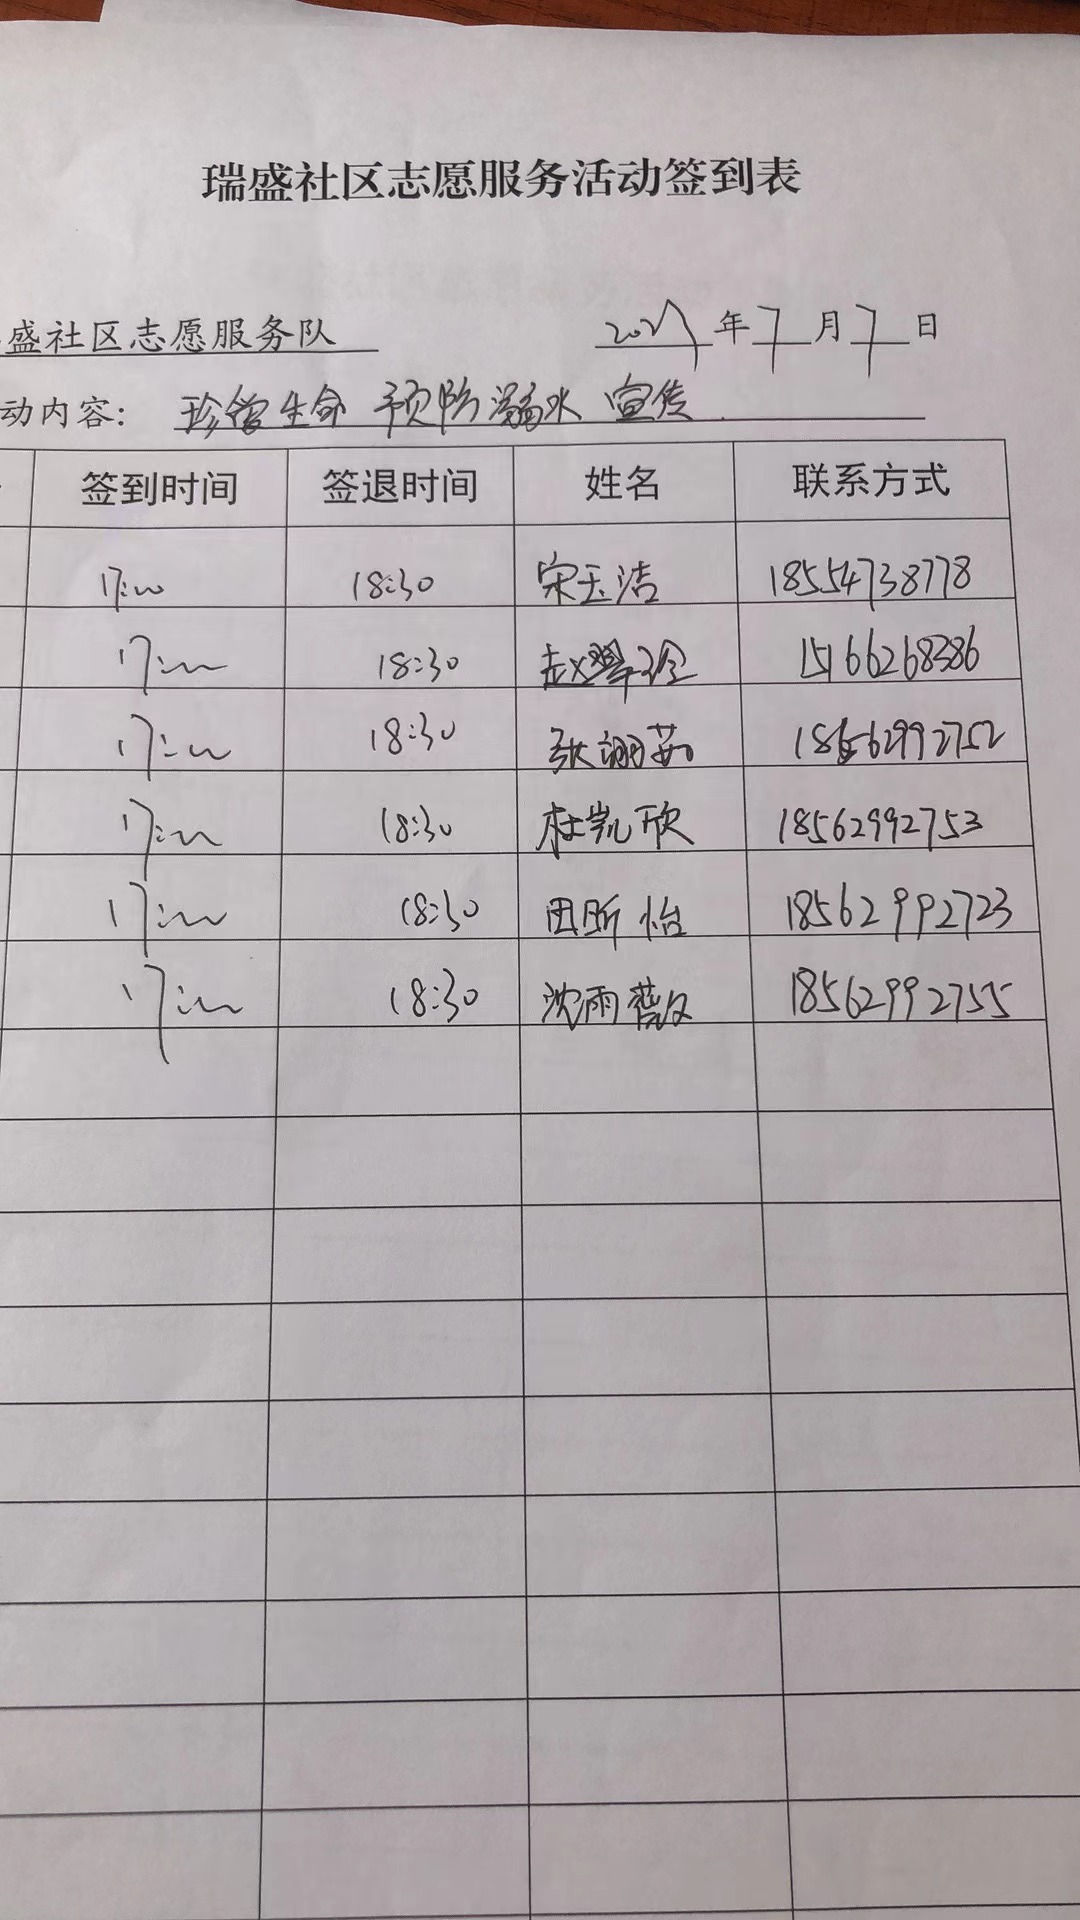 瑞盛社区志愿服务活动签到表
盛社区志愿服务队 年7月7日
动内容： 珍惜生命 预防溺水 宣传
签到时间 签退时间 姓名 联系方式
17:00 18:30 宋玉洁 18554738778
17:00 18:30 赵 15166268386
17:00 18:30 张茹 2992752
17:00 18:30 杜凯欣 18562992753
17:00 18:30 田昕怡 18562992723
17:00 18:30 沈雨薇 18562992755